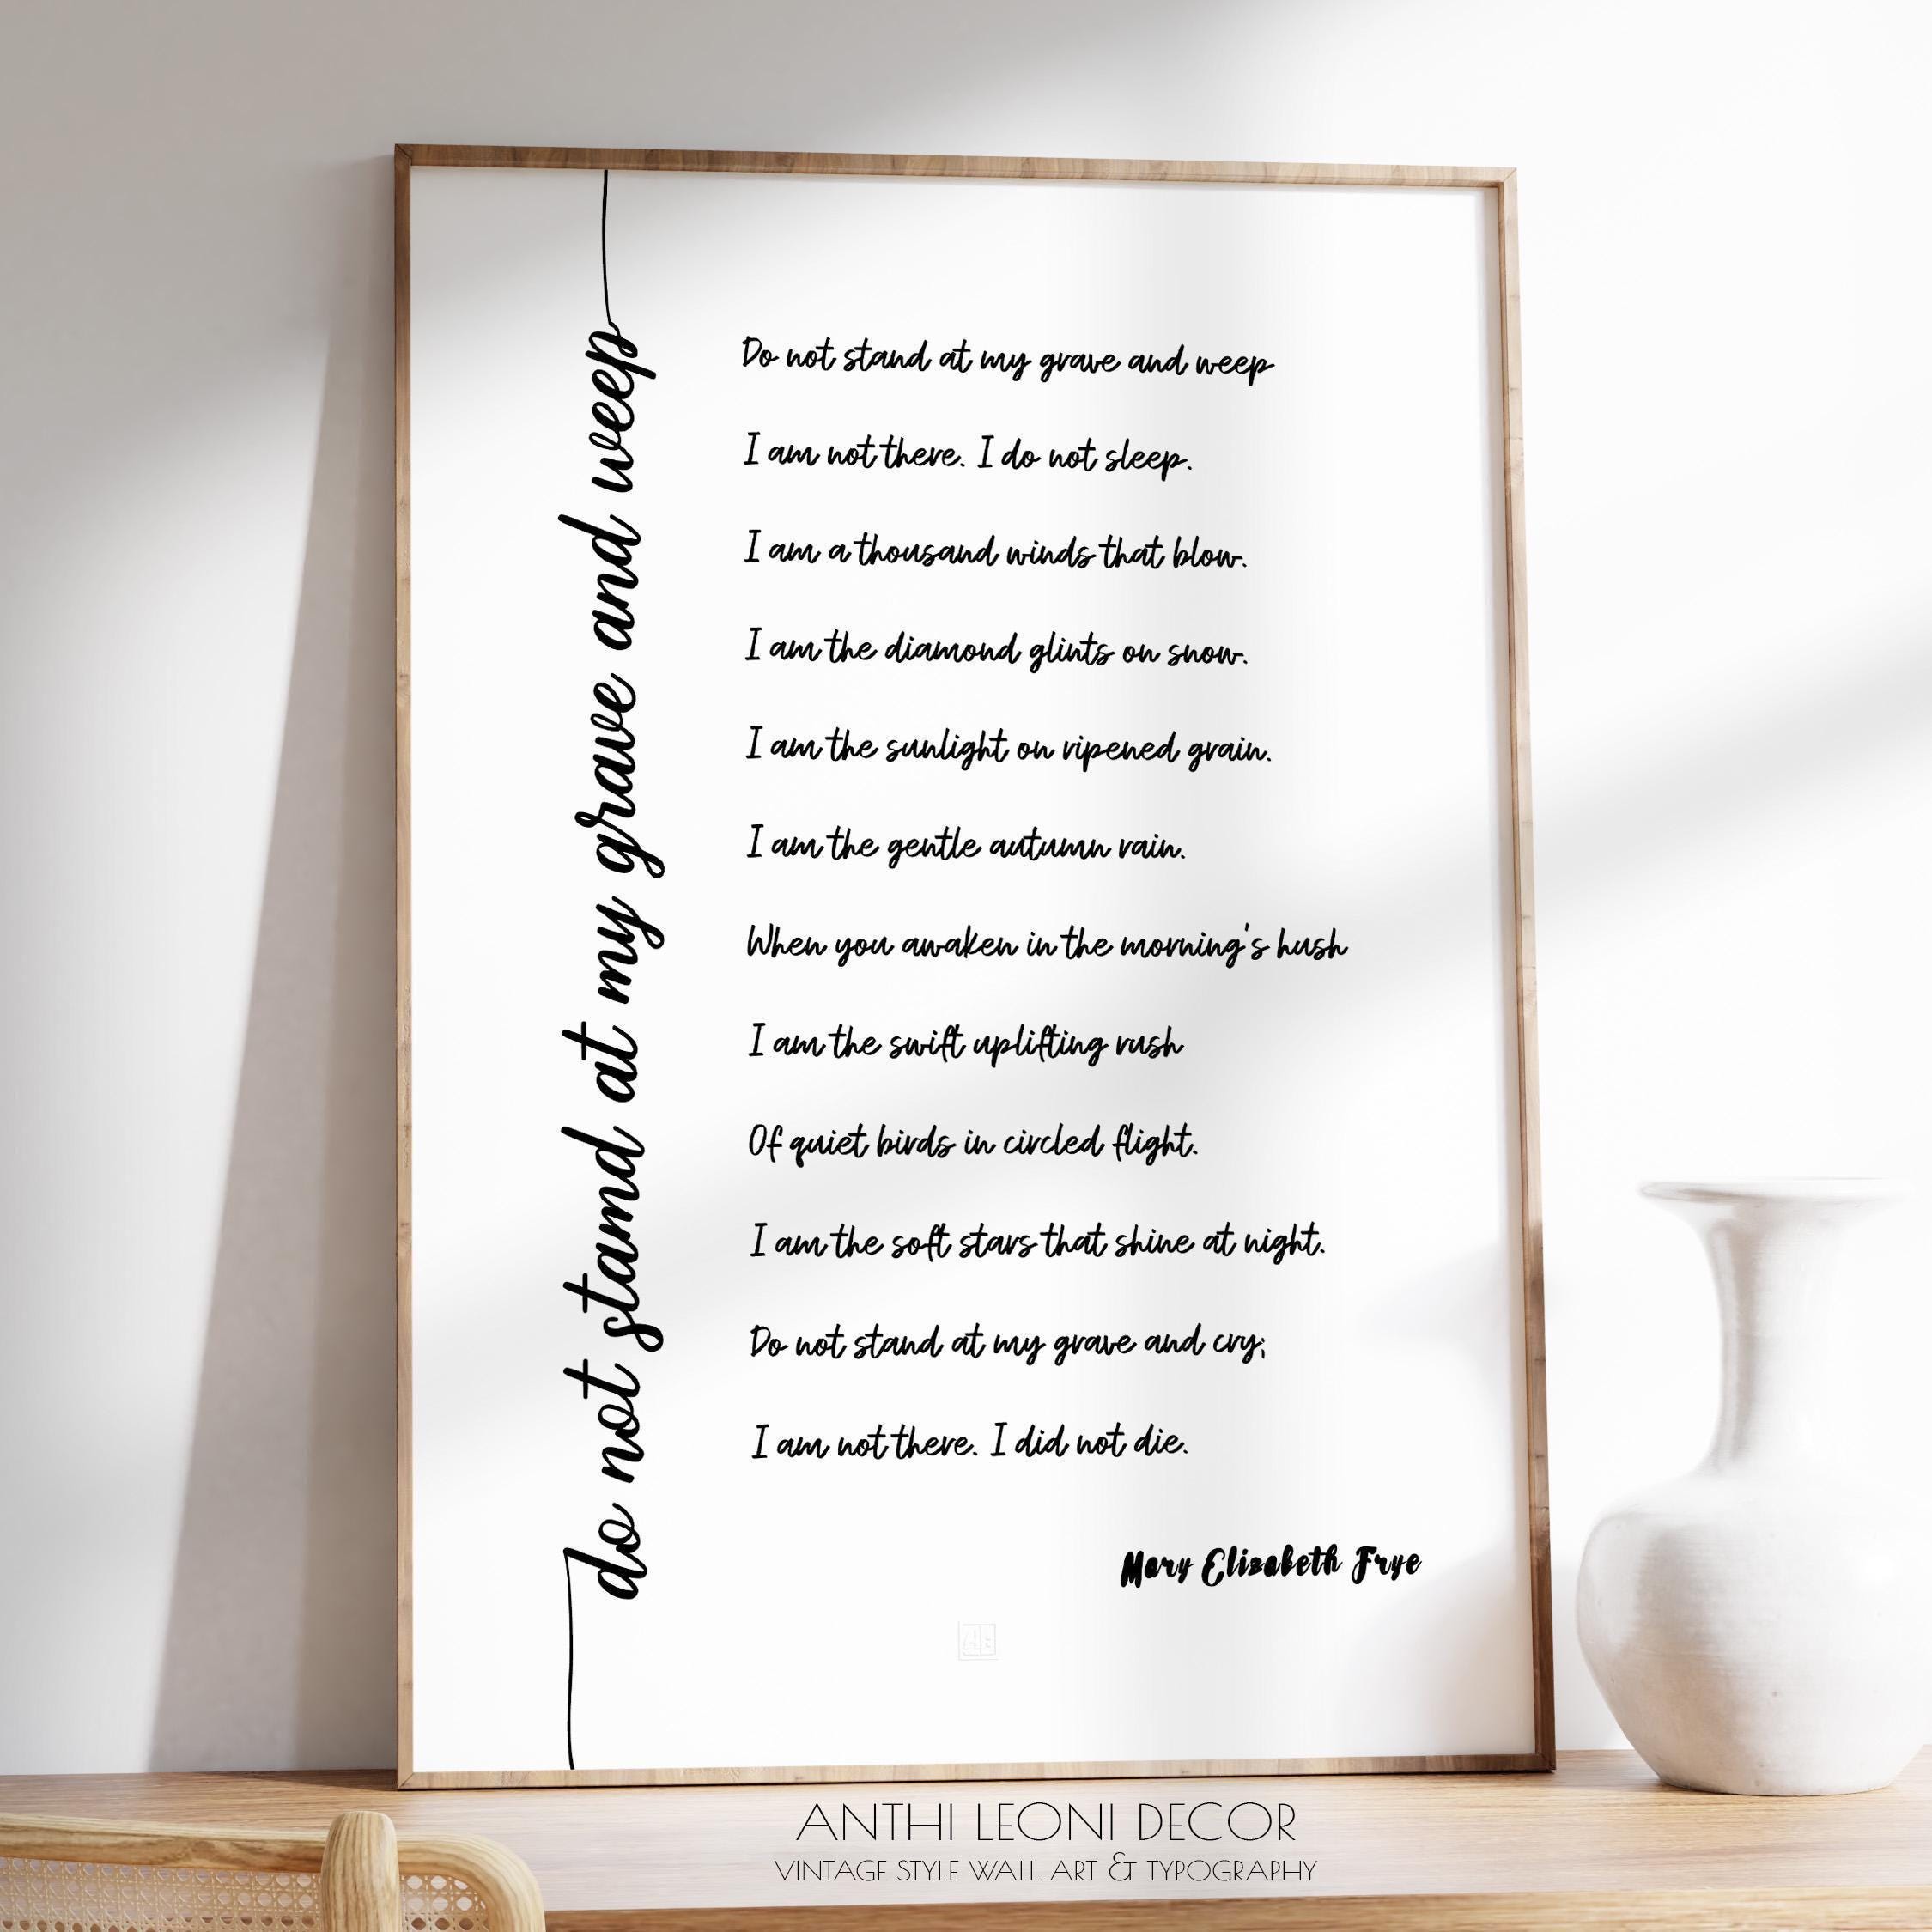 do not stamd at my grave and weep
Do not stand at my grave and weep
I am not there. I do not sleep.
I am a thousand winds that blow.
I am the diamond glints on snow.
I am the sunlight on ripened grain.
I am the gentle autumn rain.
When you awaken in the morning's hush
I am the swift uplifting rush
Of quiet birds in circled flight.
I am the soft stars that shine at night.
Do not stand at my grave and cry;
I am not there. I did not die.
Mary Elizabeth Frye
ANTHI LEONI DECOR
VINTAGE STYLE WALL ART & TYPOGRAPHY